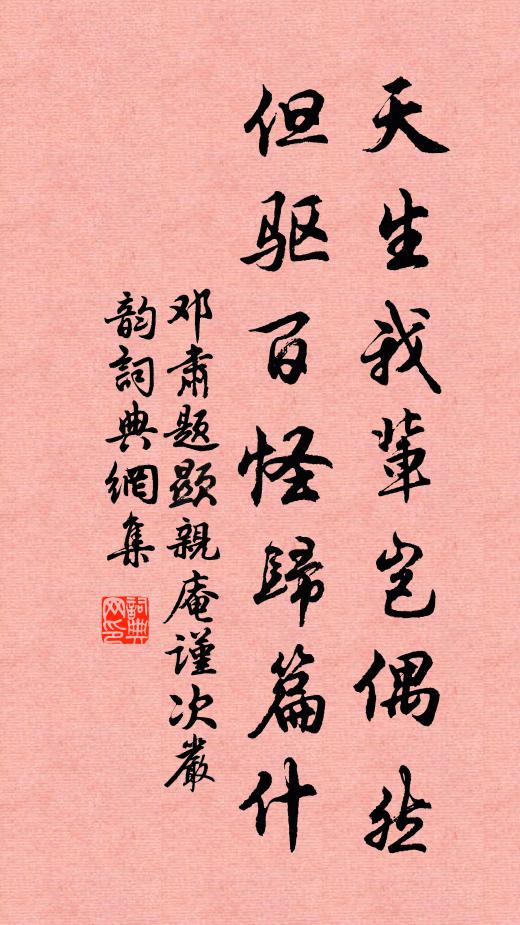 天生我輩岂偶然
但驱百怪歸篇什
邓肃题题親庵谨次嚴
韵詞典網集
詞典网印